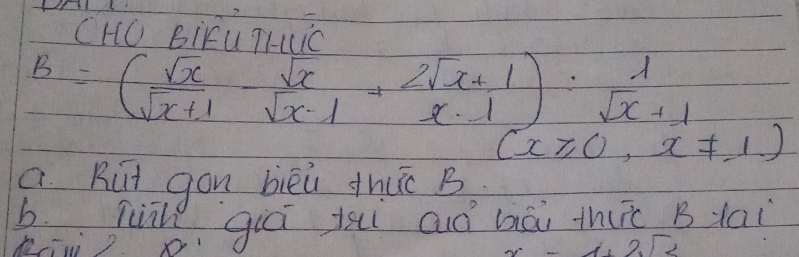 CHO BIỂU THỨC
B = (√x/(√x+1) - √x/(√x-1) + (2√x+1)/(x-1)) : 1/(√x+1)
(x ≥ 0, x ≠ 1)
a. Rút gọn biểu thức B.
b. Tính giá trị của biểu thức B tại